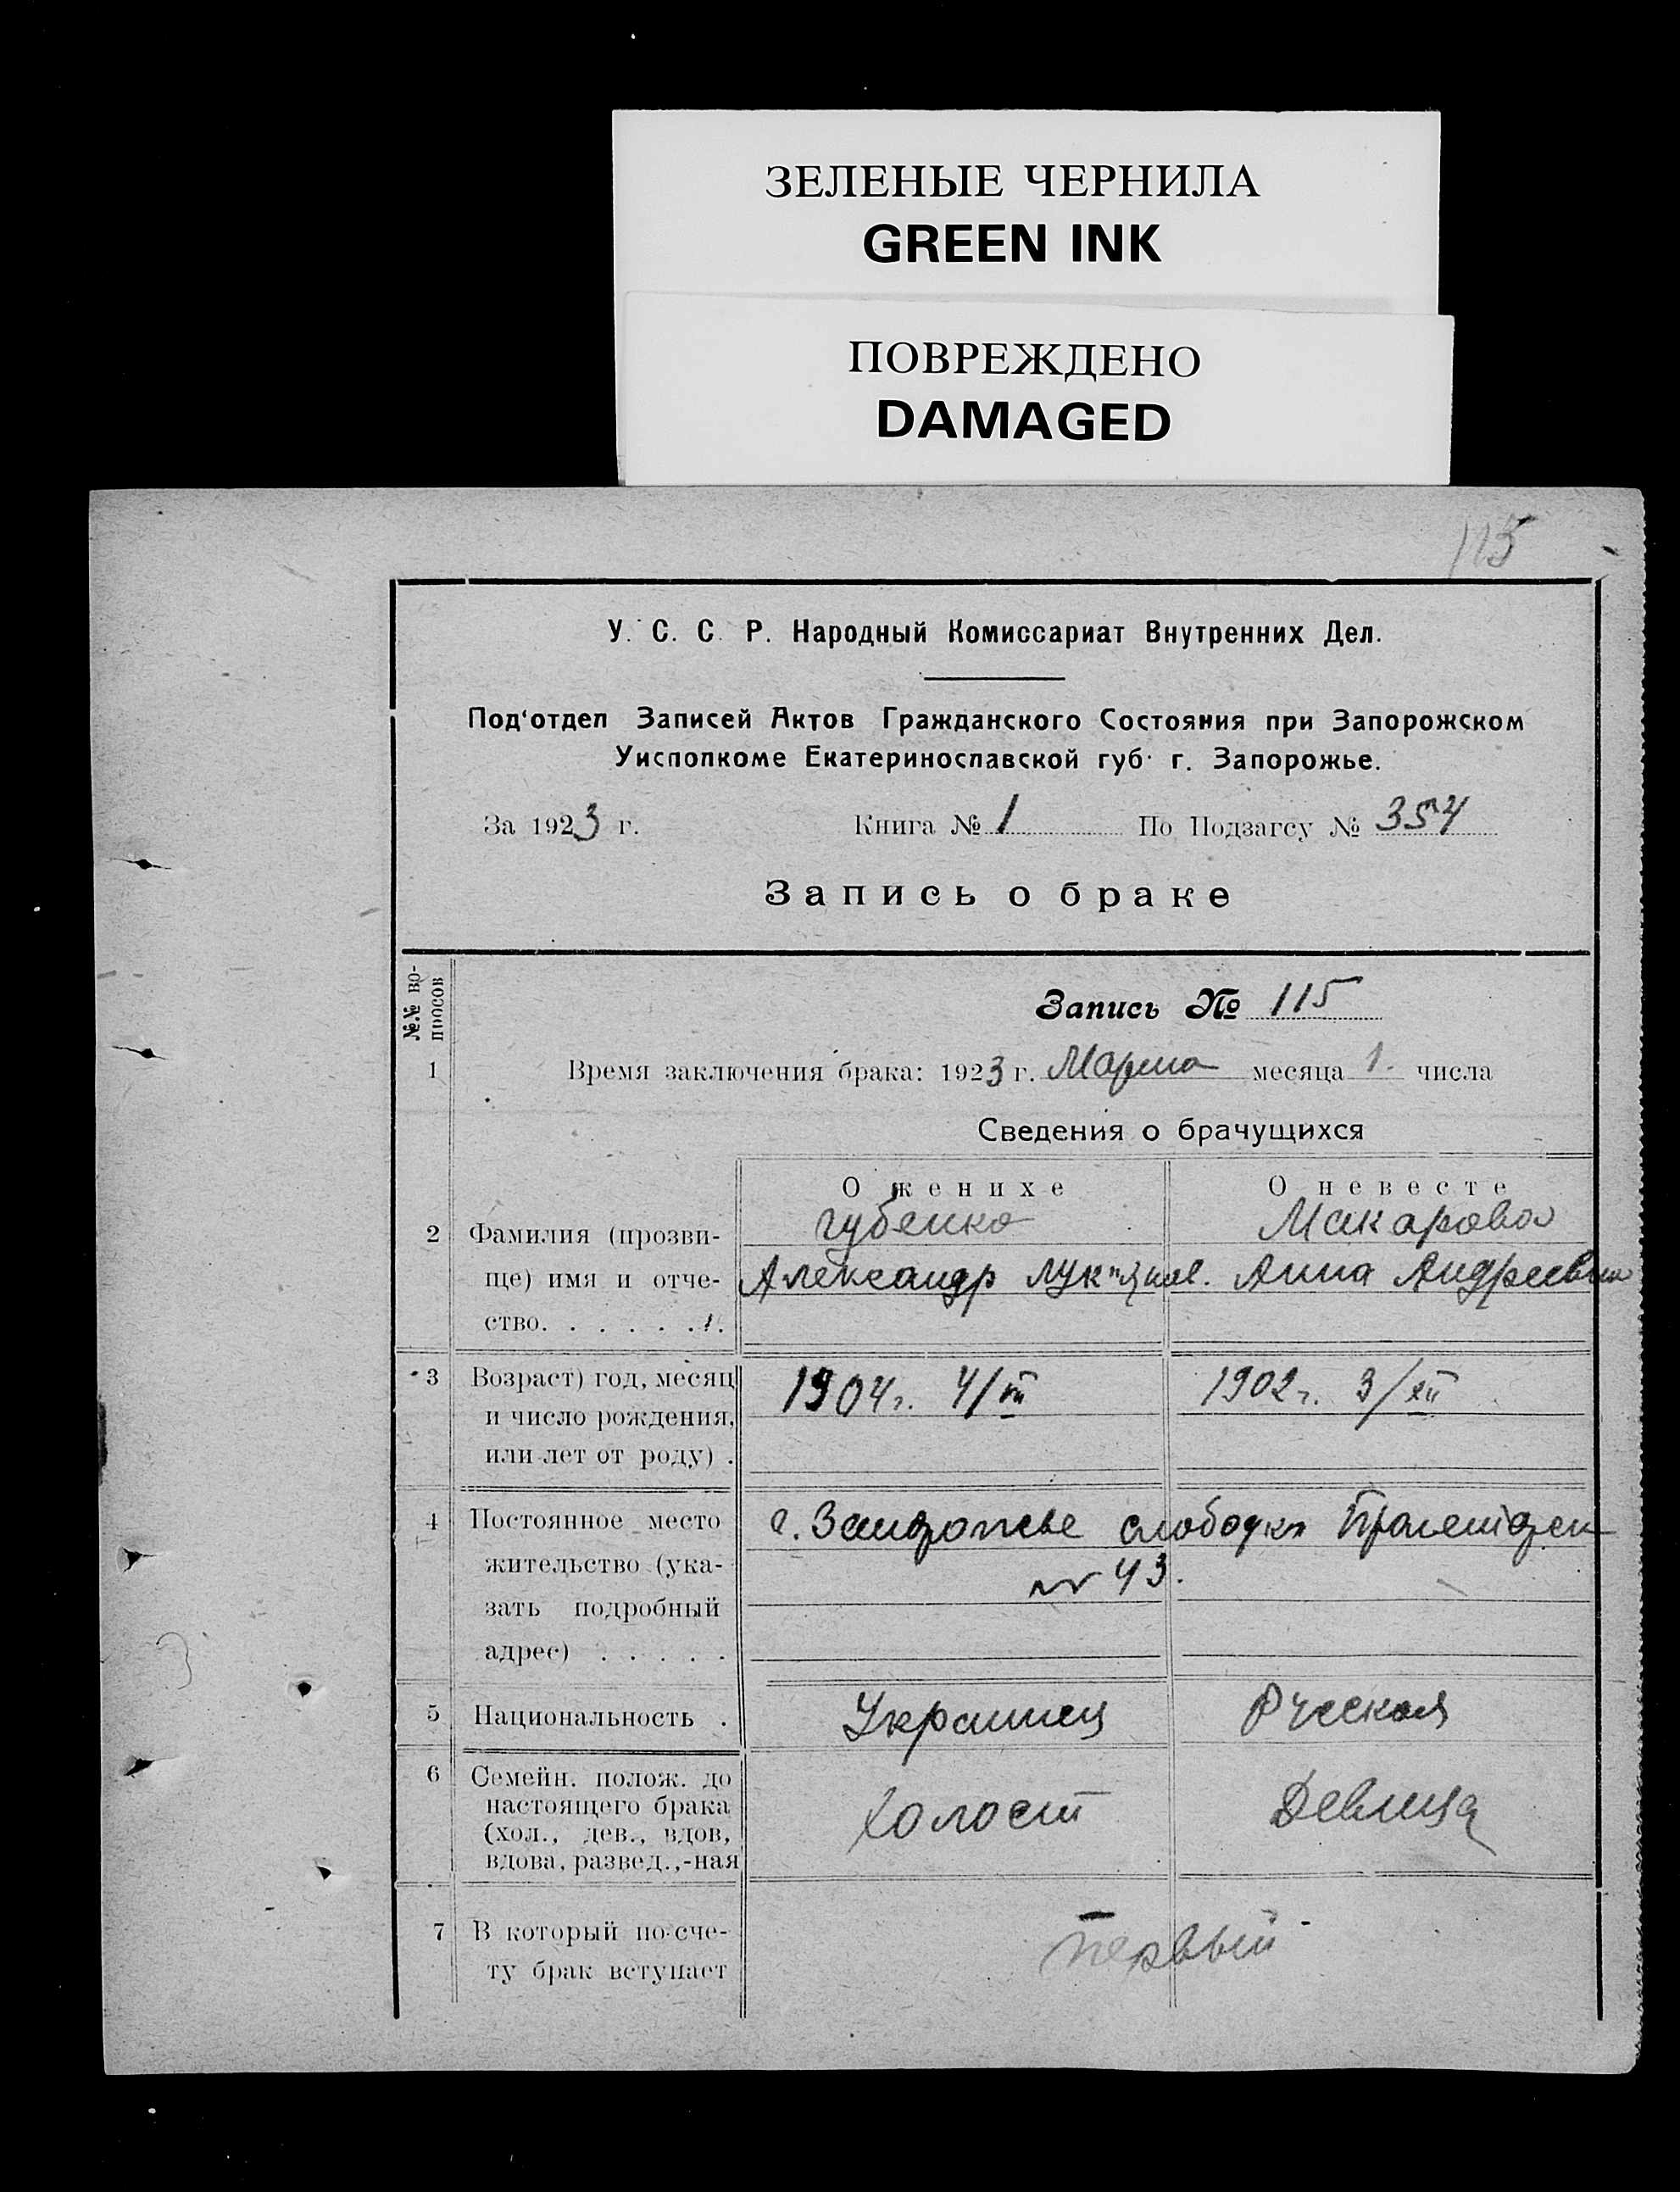 ЗЕЛЕНЫЕ ЧЕРНИЛА
GREEN INK
ПОВРЕЖДЕНО
DAMAGED
115
У. С. С. Р. Народный Комиссариат Внутренних Дел.
Под'отдел Записей Актов Гражданского Состояния при Запорожском
Уисполкоме Екатеринославской губ. г. Запорожье.
За 1923 г. Книга № 1 По Подзагсу № 354
Запись о браке
№№ во-
просов
Запись № 115
1 Время заключения брака: 1923 г. Марта месяца 1. числа
Сведения о брачущихся
О женихе О невесте
Губенко Макарова
2 Фамилия (прозви-
ще) имя и отче- Александр Лук"янов. Анна Андреевна
ство. . . . . . .
3 Возраст) год, месяц 1904 г. 4/III 1902 г. 3/XII
и число рождения,
или лет от роду) .
4 Постоянное место г. Запорожье слободка
жительство (ука- № 43.
зать подробный
адрес) . . . . .
5 Национальность . Украинец Русская
6 Семейн. полож. до
настоящего брака Холост Девица
(хол., дев., вдов,
вдова, развед.,-ная
7 В который по сче- первый
ту брак вступает